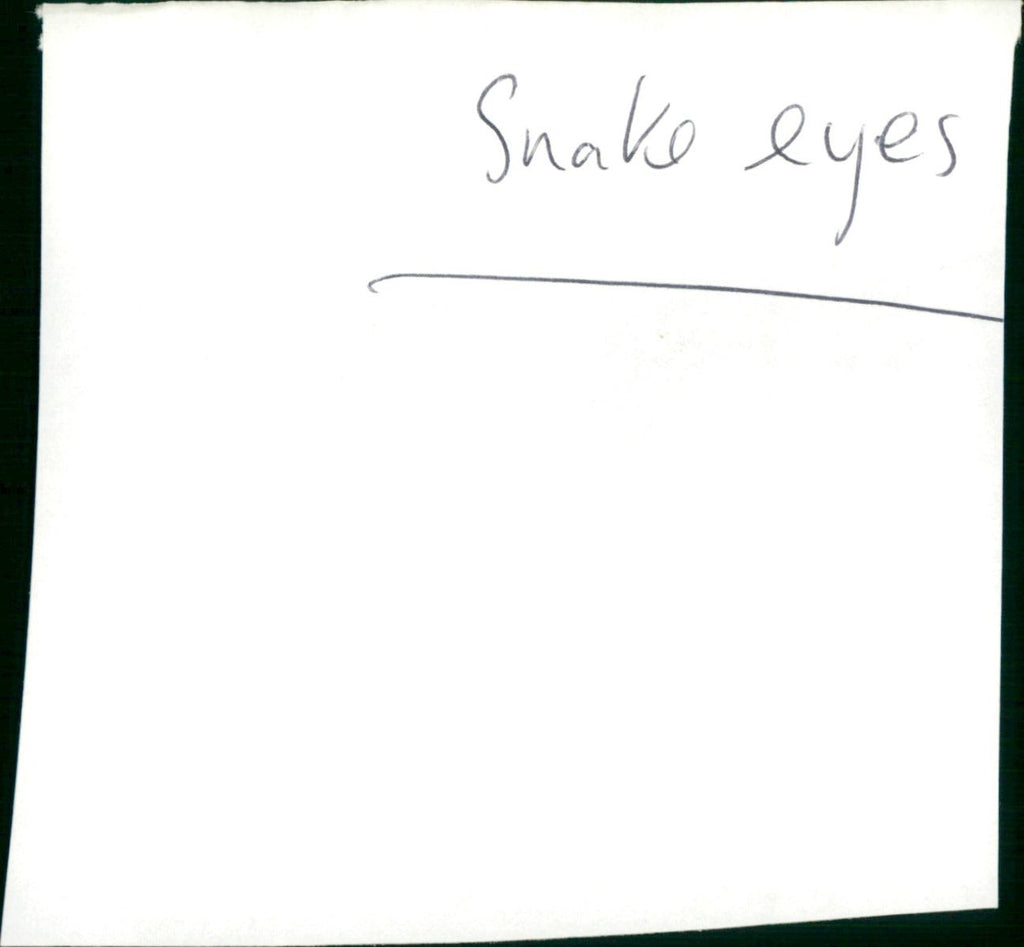 Snake eyes